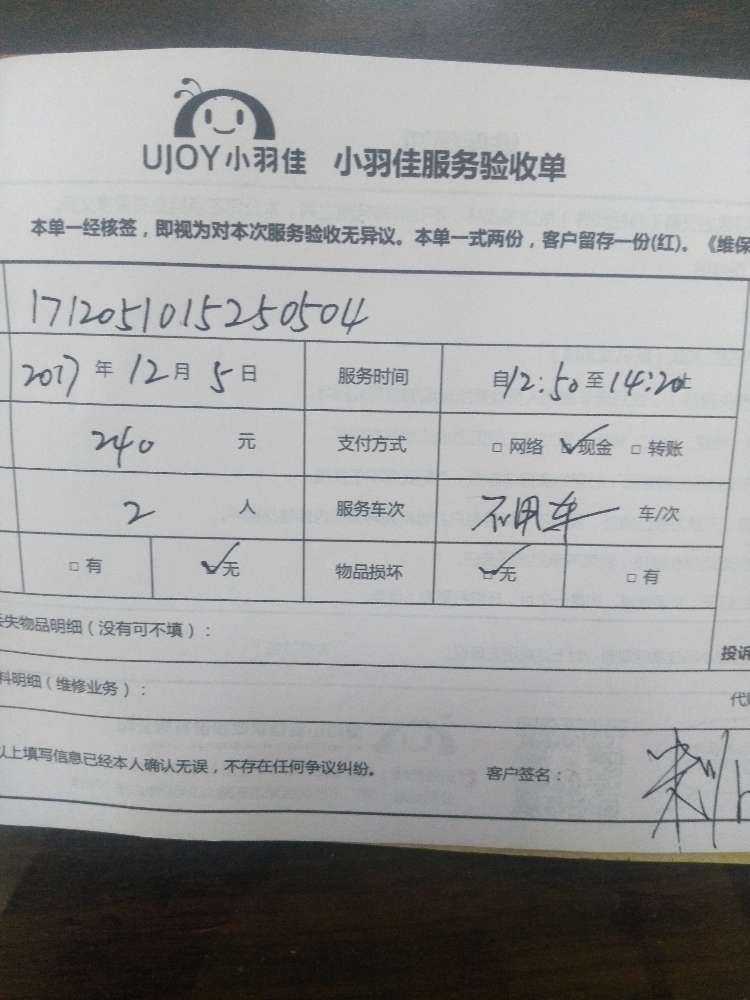 UJOY小羽佳 小羽佳服务验收单
本单一经核签，即视为对本次服务验收无异议。本单一式两份，客户留存一份(红)。《维保
1712051015250504
2017 年 12 月 5 日 服务时间 自12:50至14:20止
240 元 支付方式 □ 网络 ☑现金 □ 转账
2 人 服务车次 不用车 车/次
□ 有 ☑无 物品损坏 ☑无 □ 有
失物品明细（没有可不填）：
投诉
料明细（维修业务）：
以上填写信息已经本人确认无误，不存在任何争议纠纷。 客户签名：